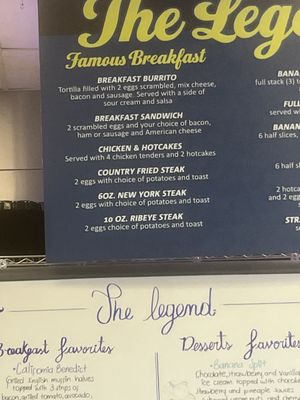 The Leg
Famous Breakfast
BREAKFAST BURRITO
Tortilla filled with 2 eggs scrambled, mix cheese,
bacon and sausage. Served with a side of
sour cream and salsa
BREAKFAST SANDWICH
2 scrambled eggs and your choice of bacon,
ham or sausage and American cheese
CHICKEN & HOTCAKES
Served with 4 chicken tenders and 2 hotcakes
COUNTRY FRIED STEAK
2 eggs with choice of potatoes and toast
6OZ. NEW YORK STEAK
2 eggs choice of potatoes and toast
10 OZ. RIBEYE STEAK
2 eggs choice of potatoes and toast
BANA
full stack (3)
FUL
served
BANAN
6 half slices,
6 half s
2 hotca
and 2 eg
STRA
The legend
Breakfast favorites
• California Benedict
Grilled English muffin halves
topped with 3 strips of
bacon, grilled tomato, avocado,
Desserts favorites
• Banana Split
Chocolate, strawberry, and vanilla
ice cream topped with chocolate
strawberry and pineapple sauces